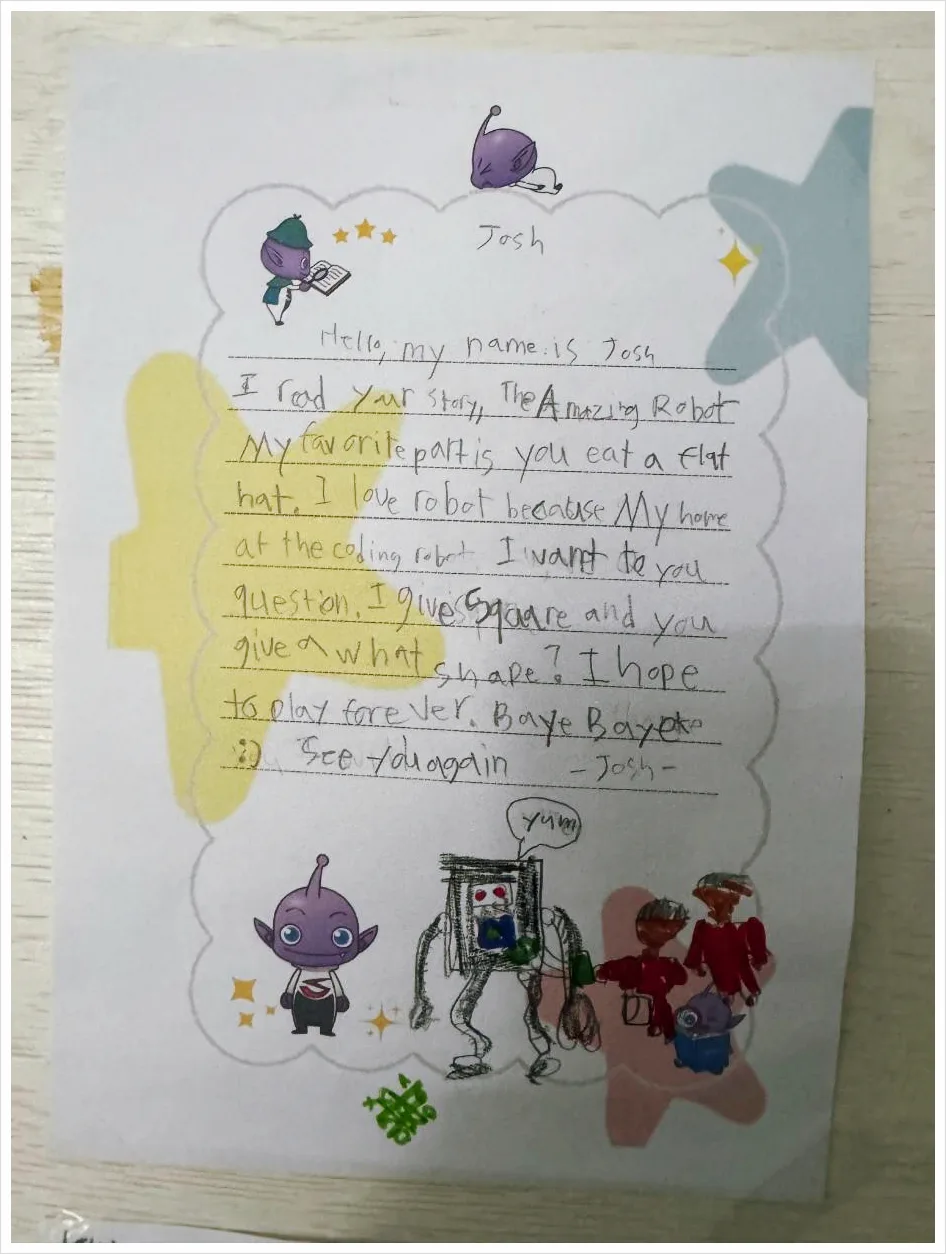 Josh
Hello, my name is Josh
I read your story, The Amazing Robot
My favorite part is you eat a flat
hat. I love robot because My home
at the coding robot I want to you
question. I give Sqaare and you
give a what shape? I hope
to play forever. Baye Baye
:) See you again -Josh-
yum